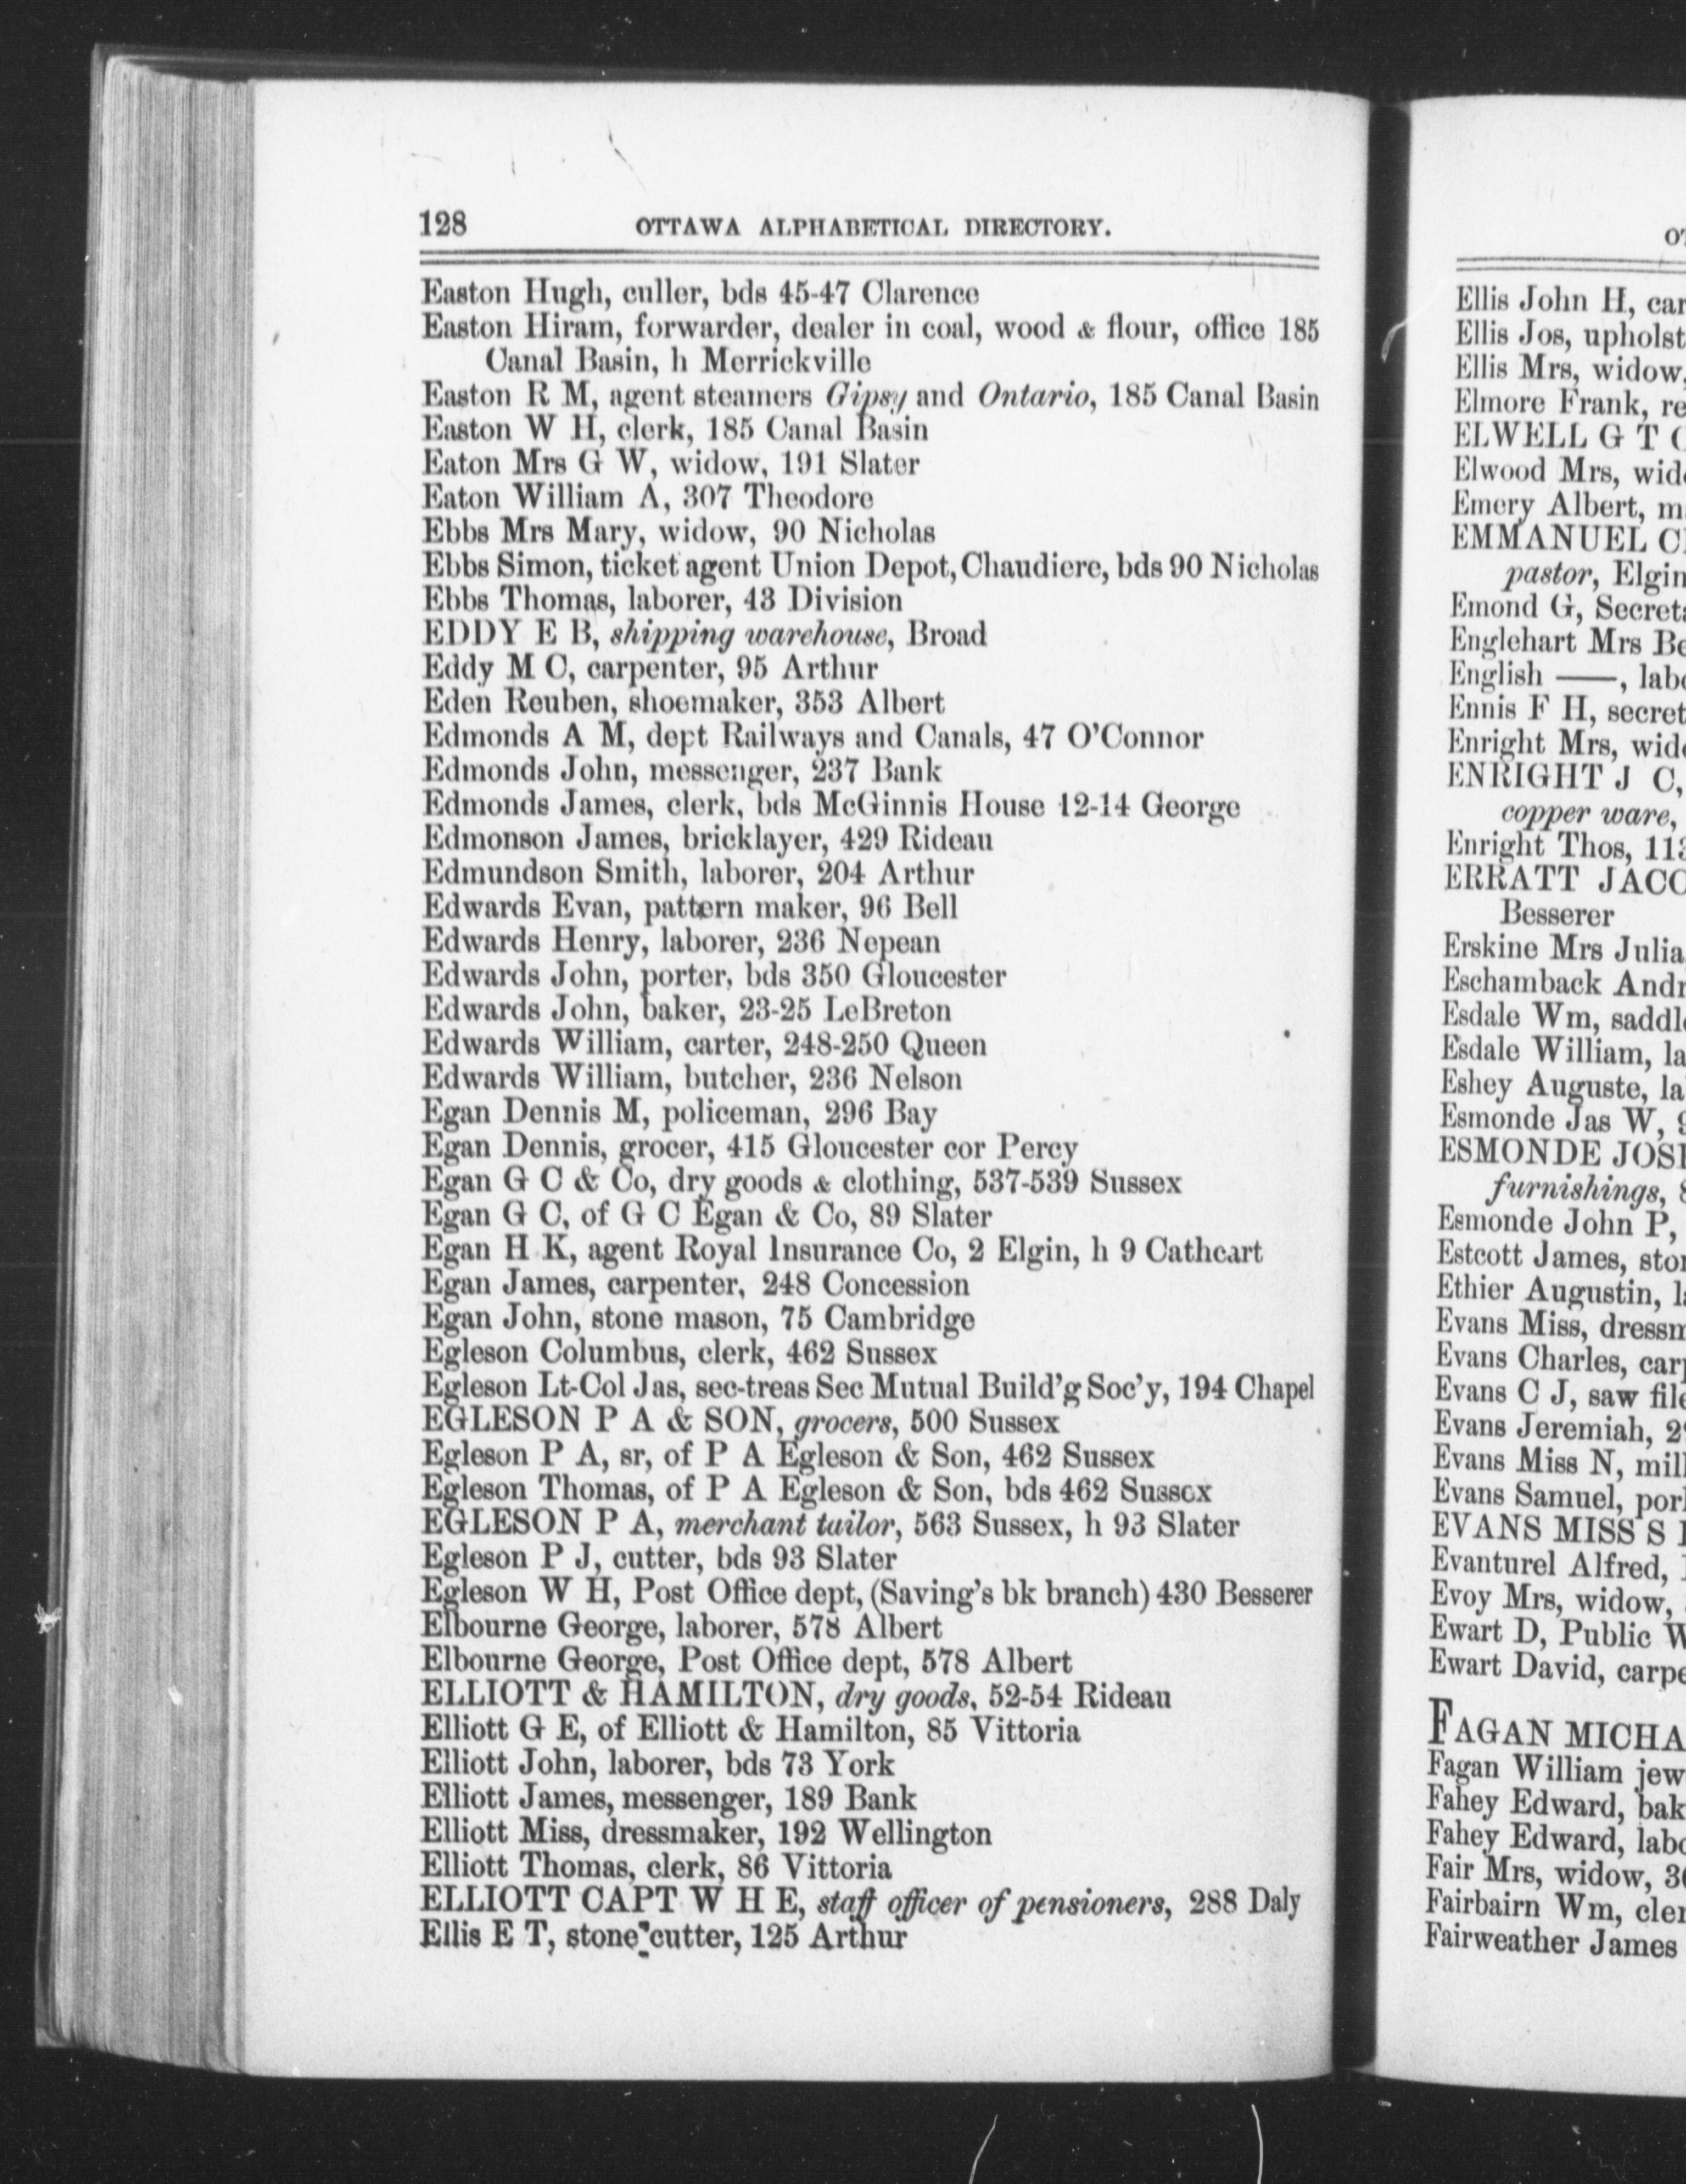 128 OTTAWA ALPHABETICAL DIRECTORY.
Easton Hugh, culler, bds 45-47 Clarence
Easton Hiram, forwarder, dealer in coal, wood & flour, office 185
Canal Basin, h Merrickville
Easton R M, agent steamers Gipsy and Ontario, 185 Canal Basin
Easton W H, clerk, 185 Canal Basin
Eaton Mrs G W, widow, 191 Slater
Eaton William A, 307 Theodore
Ebbs Mrs Mary, widow, 90 Nicholas
Ebbs Simon, ticket agent Union Depot, Chaudiere, bds 90 Nicholas
Ebbs Thomas, laborer, 43 Division
EDDY E B, shipping warehouse, Broad
Eddy M C, carpenter, 95 Arthur
Eden Reuben, shoemaker, 353 Albert
Edmonds A M, dept Railways and Canals, 47 O'Connor
Edmonds John, messenger, 237 Bank
Edmonds James, clerk, bds McGinnis House 12-14 George
Edmonson James, bricklayer, 429 Rideau
Edmundson Smith, laborer, 204 Arthur
Edwards Evan, pattern maker, 96 Bell
Edwards Henry, laborer, 236 Nepean
Edwards John, porter, bds 350 Gloucester
Edwards John, baker, 23-25 LeBreton
Edwards William, carter, 248-250 Queen
Edwards William, butcher, 236 Nelson
Egan Dennis M, policeman, 296 Bay
Egan Dennis, grocer, 415 Gloucester cor Percy
Egan G C & Co, dry goods & clothing, 537-539 Sussex
Egan G C, of G C Egan & Co, 89 Slater
Egan H K, agent Royal Insurance Co, 2 Elgin, h 9 Cathcart
Egan James, carpenter, 248 Concession
Egan John, stone mason, 75 Cambridge
Egleson Columbus, clerk, 462 Sussex
Egleson Lt-Col Jas, sec-treas Sec Mutual Build'g Soc'y, 194 Chapel
EGLESON P A & SON, grocers, 500 Sussex
Egleson P A, sr, of P A Egleson & Son, 462 Sussex
Egleson Thomas, of P A Egleson & Son, bds 462 Sussex
EGLESON P A, merchant tailor, 563 Sussex, h 93 Slater
Egleson P J, cutter, bds 93 Slater
Egleson W H, Post Office dept, (Saving's bk branch) 430 Besserer
Elbourne George, laborer, 578 Albert
Elbourne George, Post Office dept, 578 Albert
ELLIOTT & HAMILTON, dry goods, 52-54 Rideau
Elliott G E, of Elliott & Hamilton, 85 Vittoria
Elliott John, laborer, bds 73 York
Elliott James, messenger, 189 Bank
Elliott Miss, dressmaker, 192 Wellington
Elliott Thomas, clerk, 86 Vittoria
ELLIOTT CAPT W H E, staff officer of pensioners, 288 Daly
Ellis E T, stone cutter, 125 Arthur
Ellis John H,
Ellis Jos,
Ellis Mrs, widow,
Elmore Frank,
ELWELL G T
Elwood Mrs,
Emery Albert,
EMMANUEL
pastor, Elgin
Emond G,
Englehart Mrs
English ——,
Ennis F H,
Enright Mrs,
ENRIGHT J C,
copper ware,
Enright Thos,
ERRATT
Besserer
Erskine Mrs Julia
Eschamback
Esdale Wm,
Esdale William,
Eshey Auguste,
Esmonde Jas W,
ESMONDE
furnishings,
Esmonde John P,
Estcott James,
Ethier Augustin,
Evans Miss,
Evans Charles,
Evans C J, saw
Evans Jeremiah,
Evans Miss N,
Evans Samuel,
EVANS MISS S
Evanturel Alfred,
Evoy Mrs, widow,
Ewart D, Public
Ewart David,
FAGAN
Fagan William
Fahey Edward,
Fahey Edward,
Fair Mrs, widow,
Fairbairn Wm,
Fairweather James